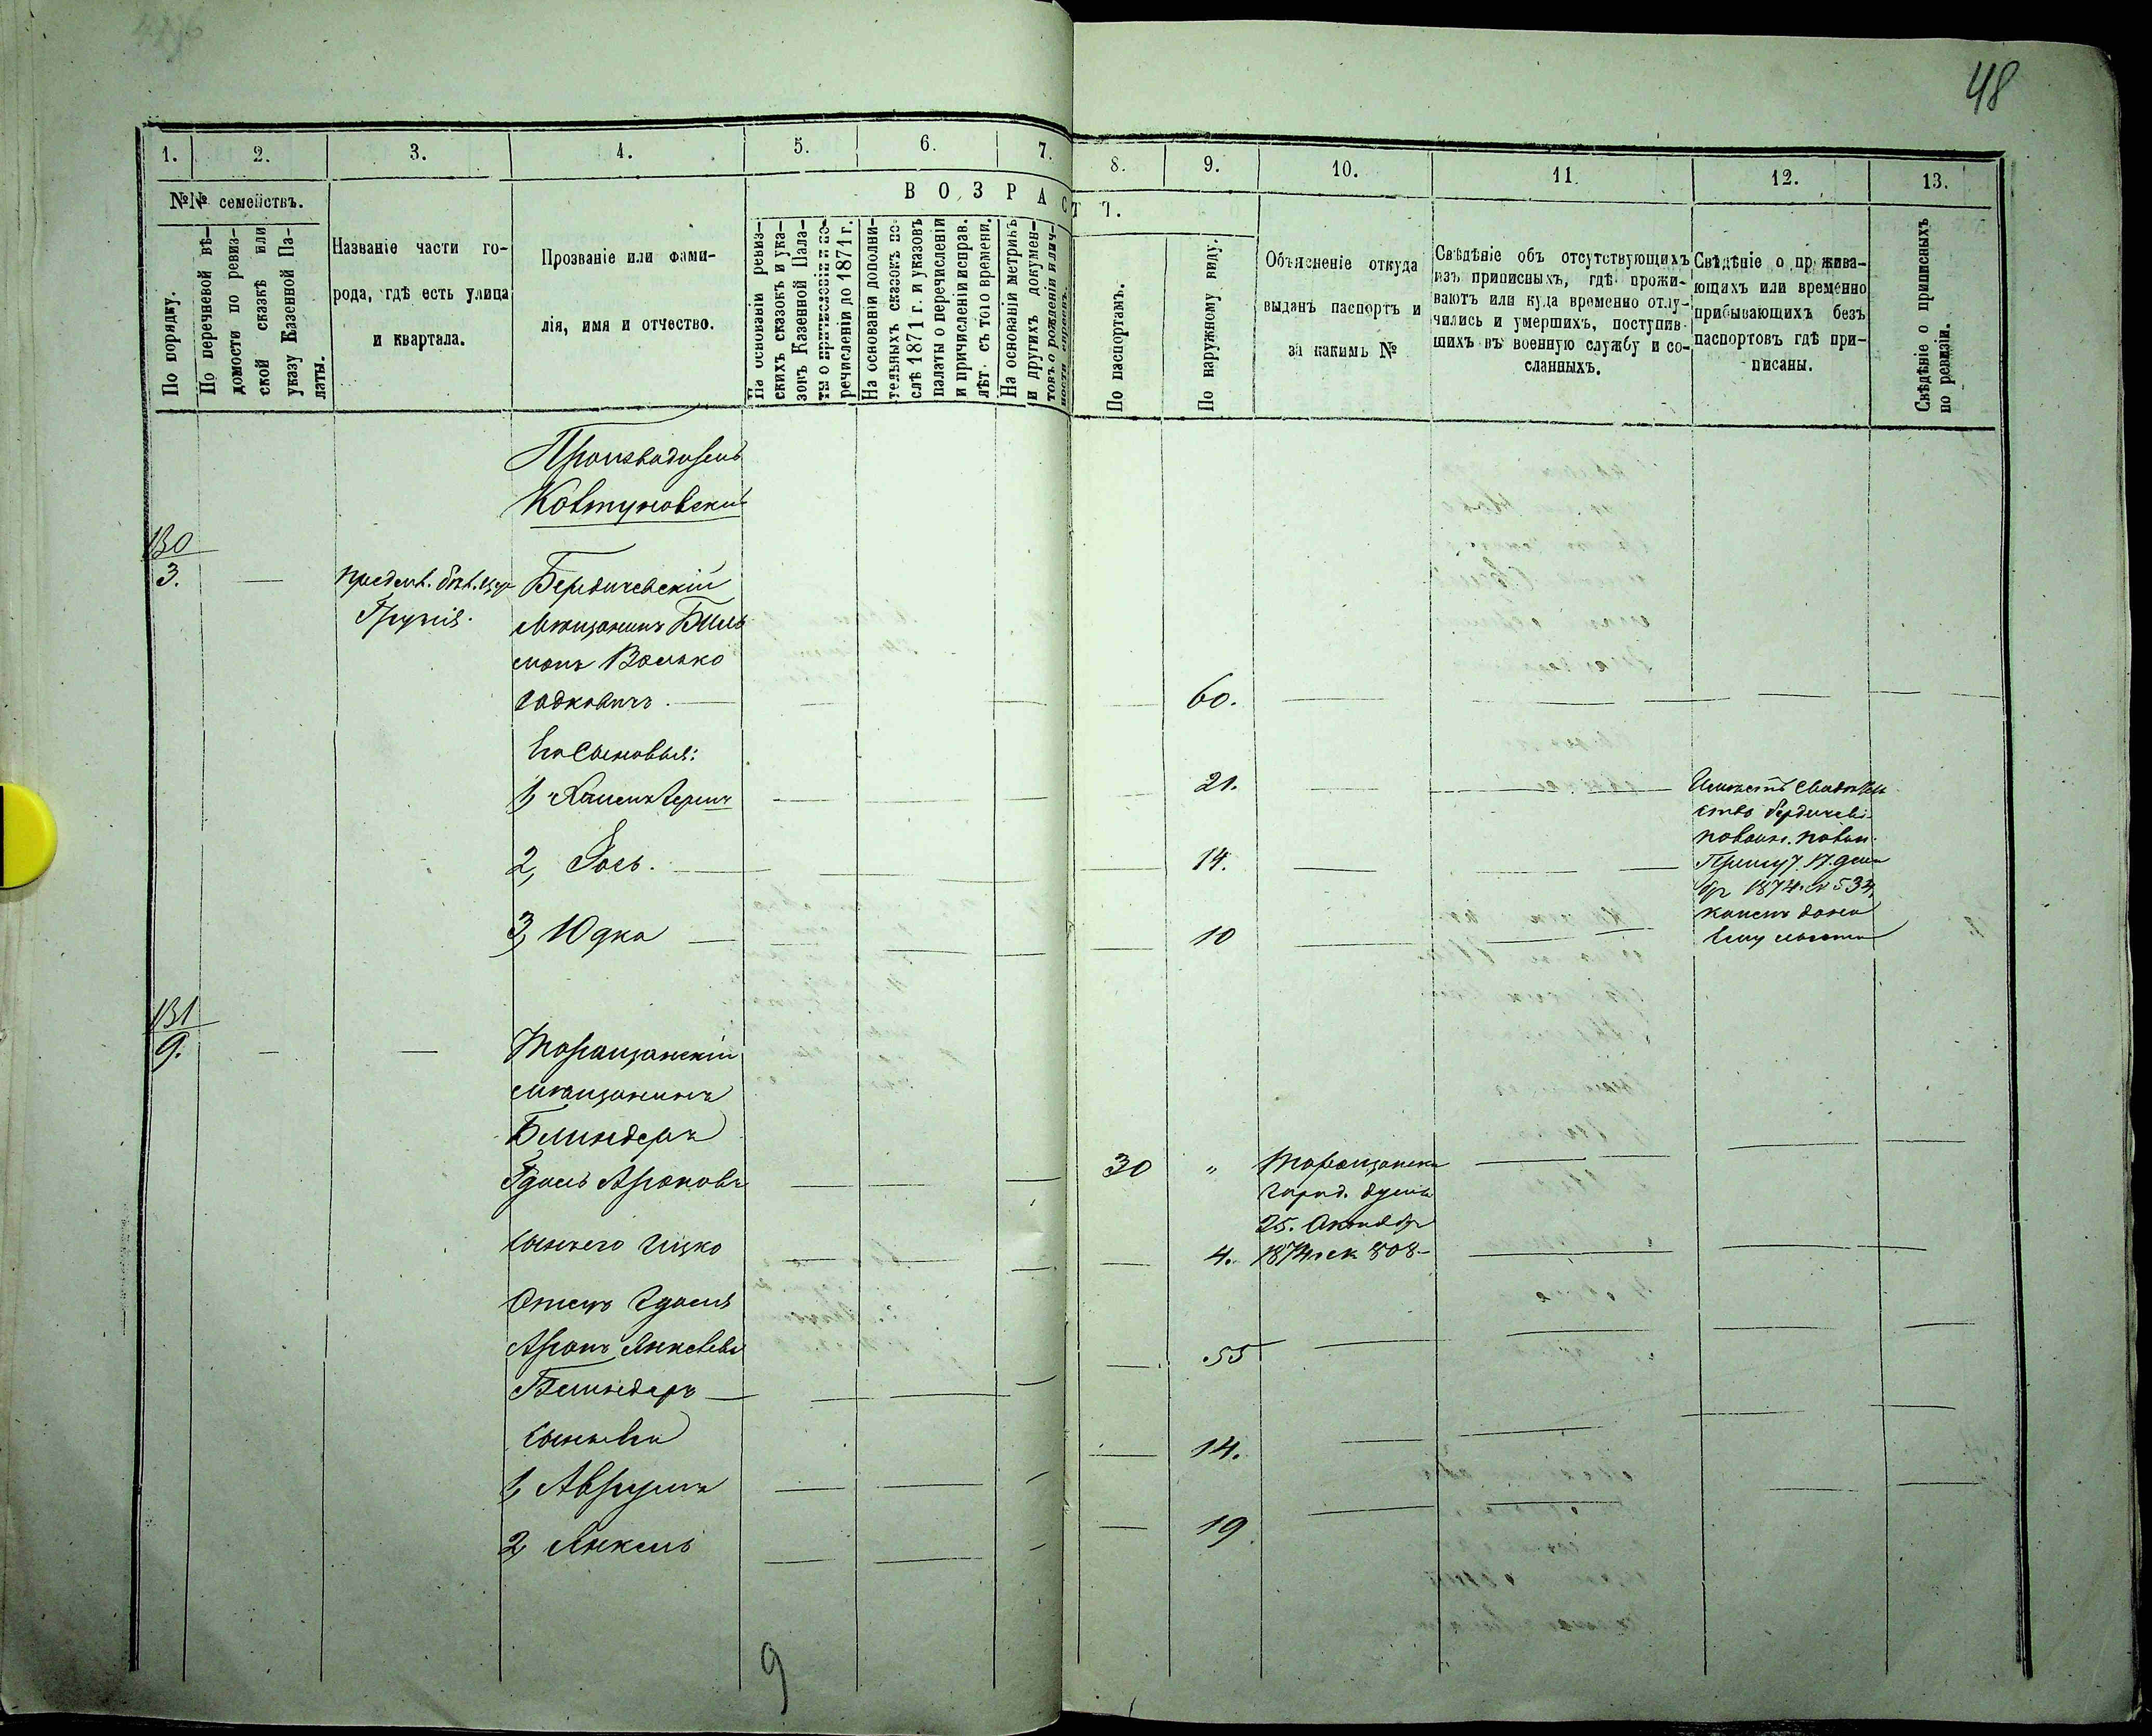 48
1.
2.
3.
4.
5.
6.
7.
8.
9.
10.
11.
12.
13.
№№ семействъ.
По порядку.
По перечневой вѣ-
домости по ревиз-
ской сказкѣ или
указу Казенной Па-
латы.
Названіе части го-
рода, гдѣ есть улица
и квартала.
Прозваніе или фами-
лія, имя и отчество.
ВОЗРАСТЪ.
На основаніи ревиз-
скихъ сказокъ и ука-
зовъ Казенной Пала-
ты о причисленіи и пе-
речисленіи до 1871 г.
На основаніи дополни-
тельныхъ сказокъ по-
слѣ 1871 г. и указовъ
палаты о перечисленіи
и причисленіи исправ.
лѣт. съ того времени.
На основаніи метрикъ
и другихъ докумен-
товъ о рожденіи и лич-
ности евреевъ.
По паспортамъ.
По наружному виду.
Объясненіе откуда
выданъ паспортъ и
за какимъ №
Свѣдѣніе объ отсутствующихъ
изъ приписныхъ, гдѣ прожи-
ваютъ или куда временно отлу-
чились и умершихъ, поступив-
шихъ въ военную службу и со-
сланныхъ.
Свѣдѣніе о прожива-
ющихъ или временно
прибывающихъ безъ
паспортовъ гдѣ при-
писаны.
Свѣдѣніе о приписныхъ
по ревизіи.
Ковтуновскій
130
3.
Бердичевскій
мѣщанинъ
Волько
60.
Его сыновья:
1,
21.
2, Іось.
14.
3, Юдка
10
17 дека
бря 1874 № 534,
131
9.
Таращанскій
мѣщанинъ
Блиндеръ
Гдаль Ароновъ
30
"
Таращанск
город. думы
25. Октября
1874 за № 808
Сынъ его Ицко
4.
Отецъ Гдаля
Аронъ Янкелевъ
55
Блиндеръ
Сыновья
14.
1, Аврумъ
2, Янкель
19
9